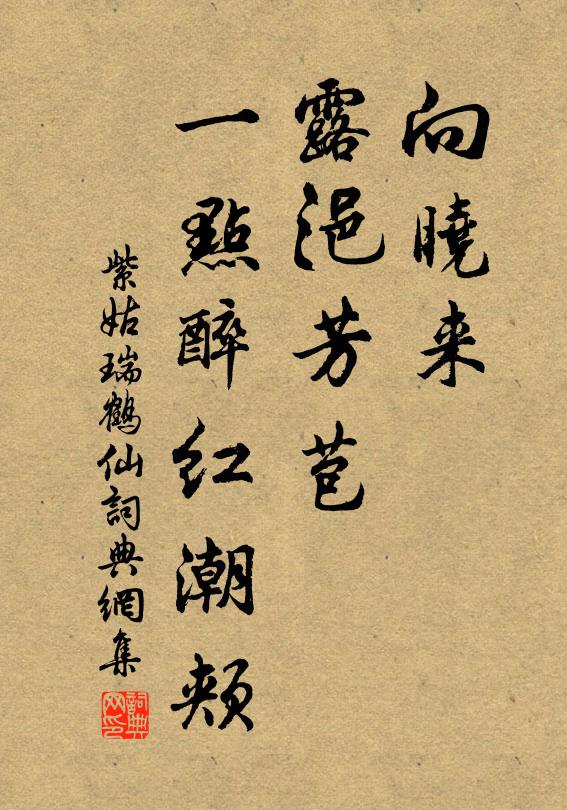 向曉来
露浥芳苞
一點醉红潮頰
紫姑瑞鶴仙詞典網集
詞典网印